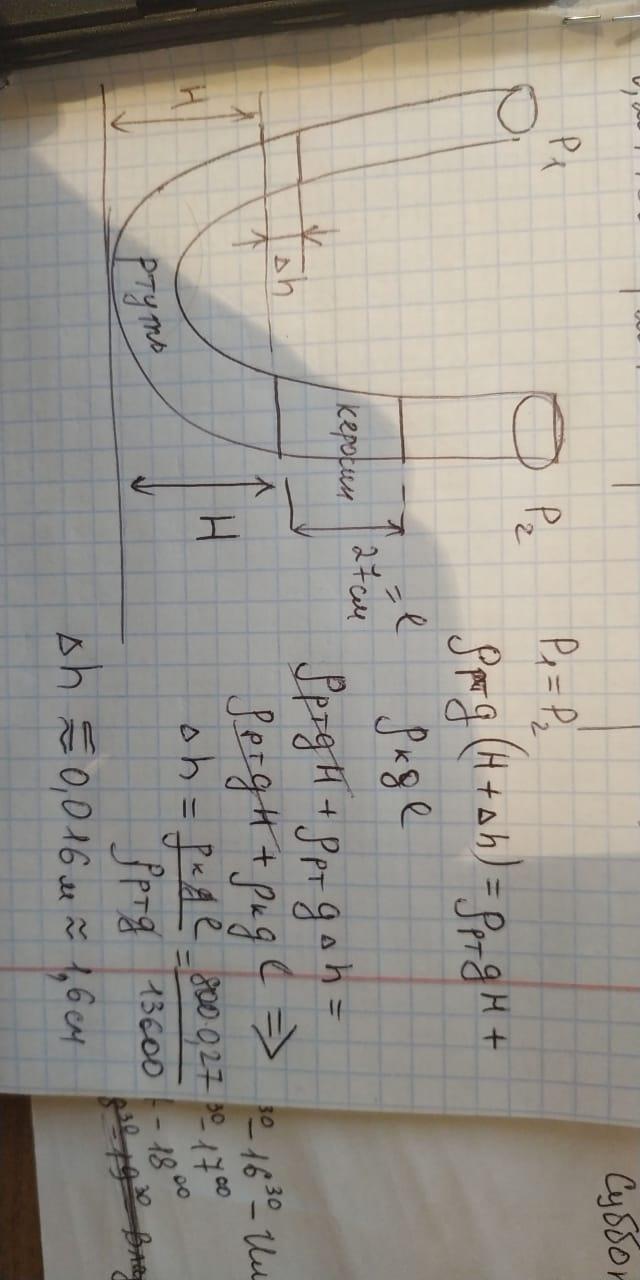 P₁
P₂
H
Δh
ртуть
керосин
H
= ℓ
27см
P₁ = P₂
ρртg(H + Δh) = ρртgH +
ρкgℓ
ρртgH + ρртgΔh =
ρртgH + ρкgℓ ⇒
Δh = ρкgℓ / ρртg = 800 0,27 / 13600
Δh ≈ 0,016м ≈ 1,6см
30 - 16 30 -
30 - 17 00
- 18 00
- 19 30